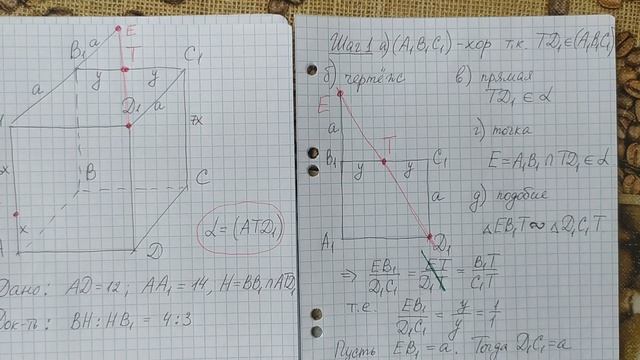 E
a
B₁
T
C₁
y
y
a
D₁
a
7x
x
B
C
x
D
α = (ATD₁)
Дано: AD=12; AA₁ = 14, H=BB₁∩ATD₁
Док-ть: BH:HB₁ = 4:3
Шаг 1 а) (A₁B₁C₁) - хор т.к. TD₁∈(A₁B₁C₁)
б) чертёж
в) прямая
TD₁ ∈ α
E
a
г) точка
T
B₁
y
y
C₁
E=A₁B₁ ∩ TD₁ ∈ α
a
д) подобие
A₁
D₁
△EB₁T ∾ △D₁C₁T
⇒ EB₁/D₁C₁ = ET/D₁T = B₁T/C₁T
т.е. EB₁/D₁C₁ = y/y = 1/1
Пусть EB₁ = a. Тогда D₁C₁=a